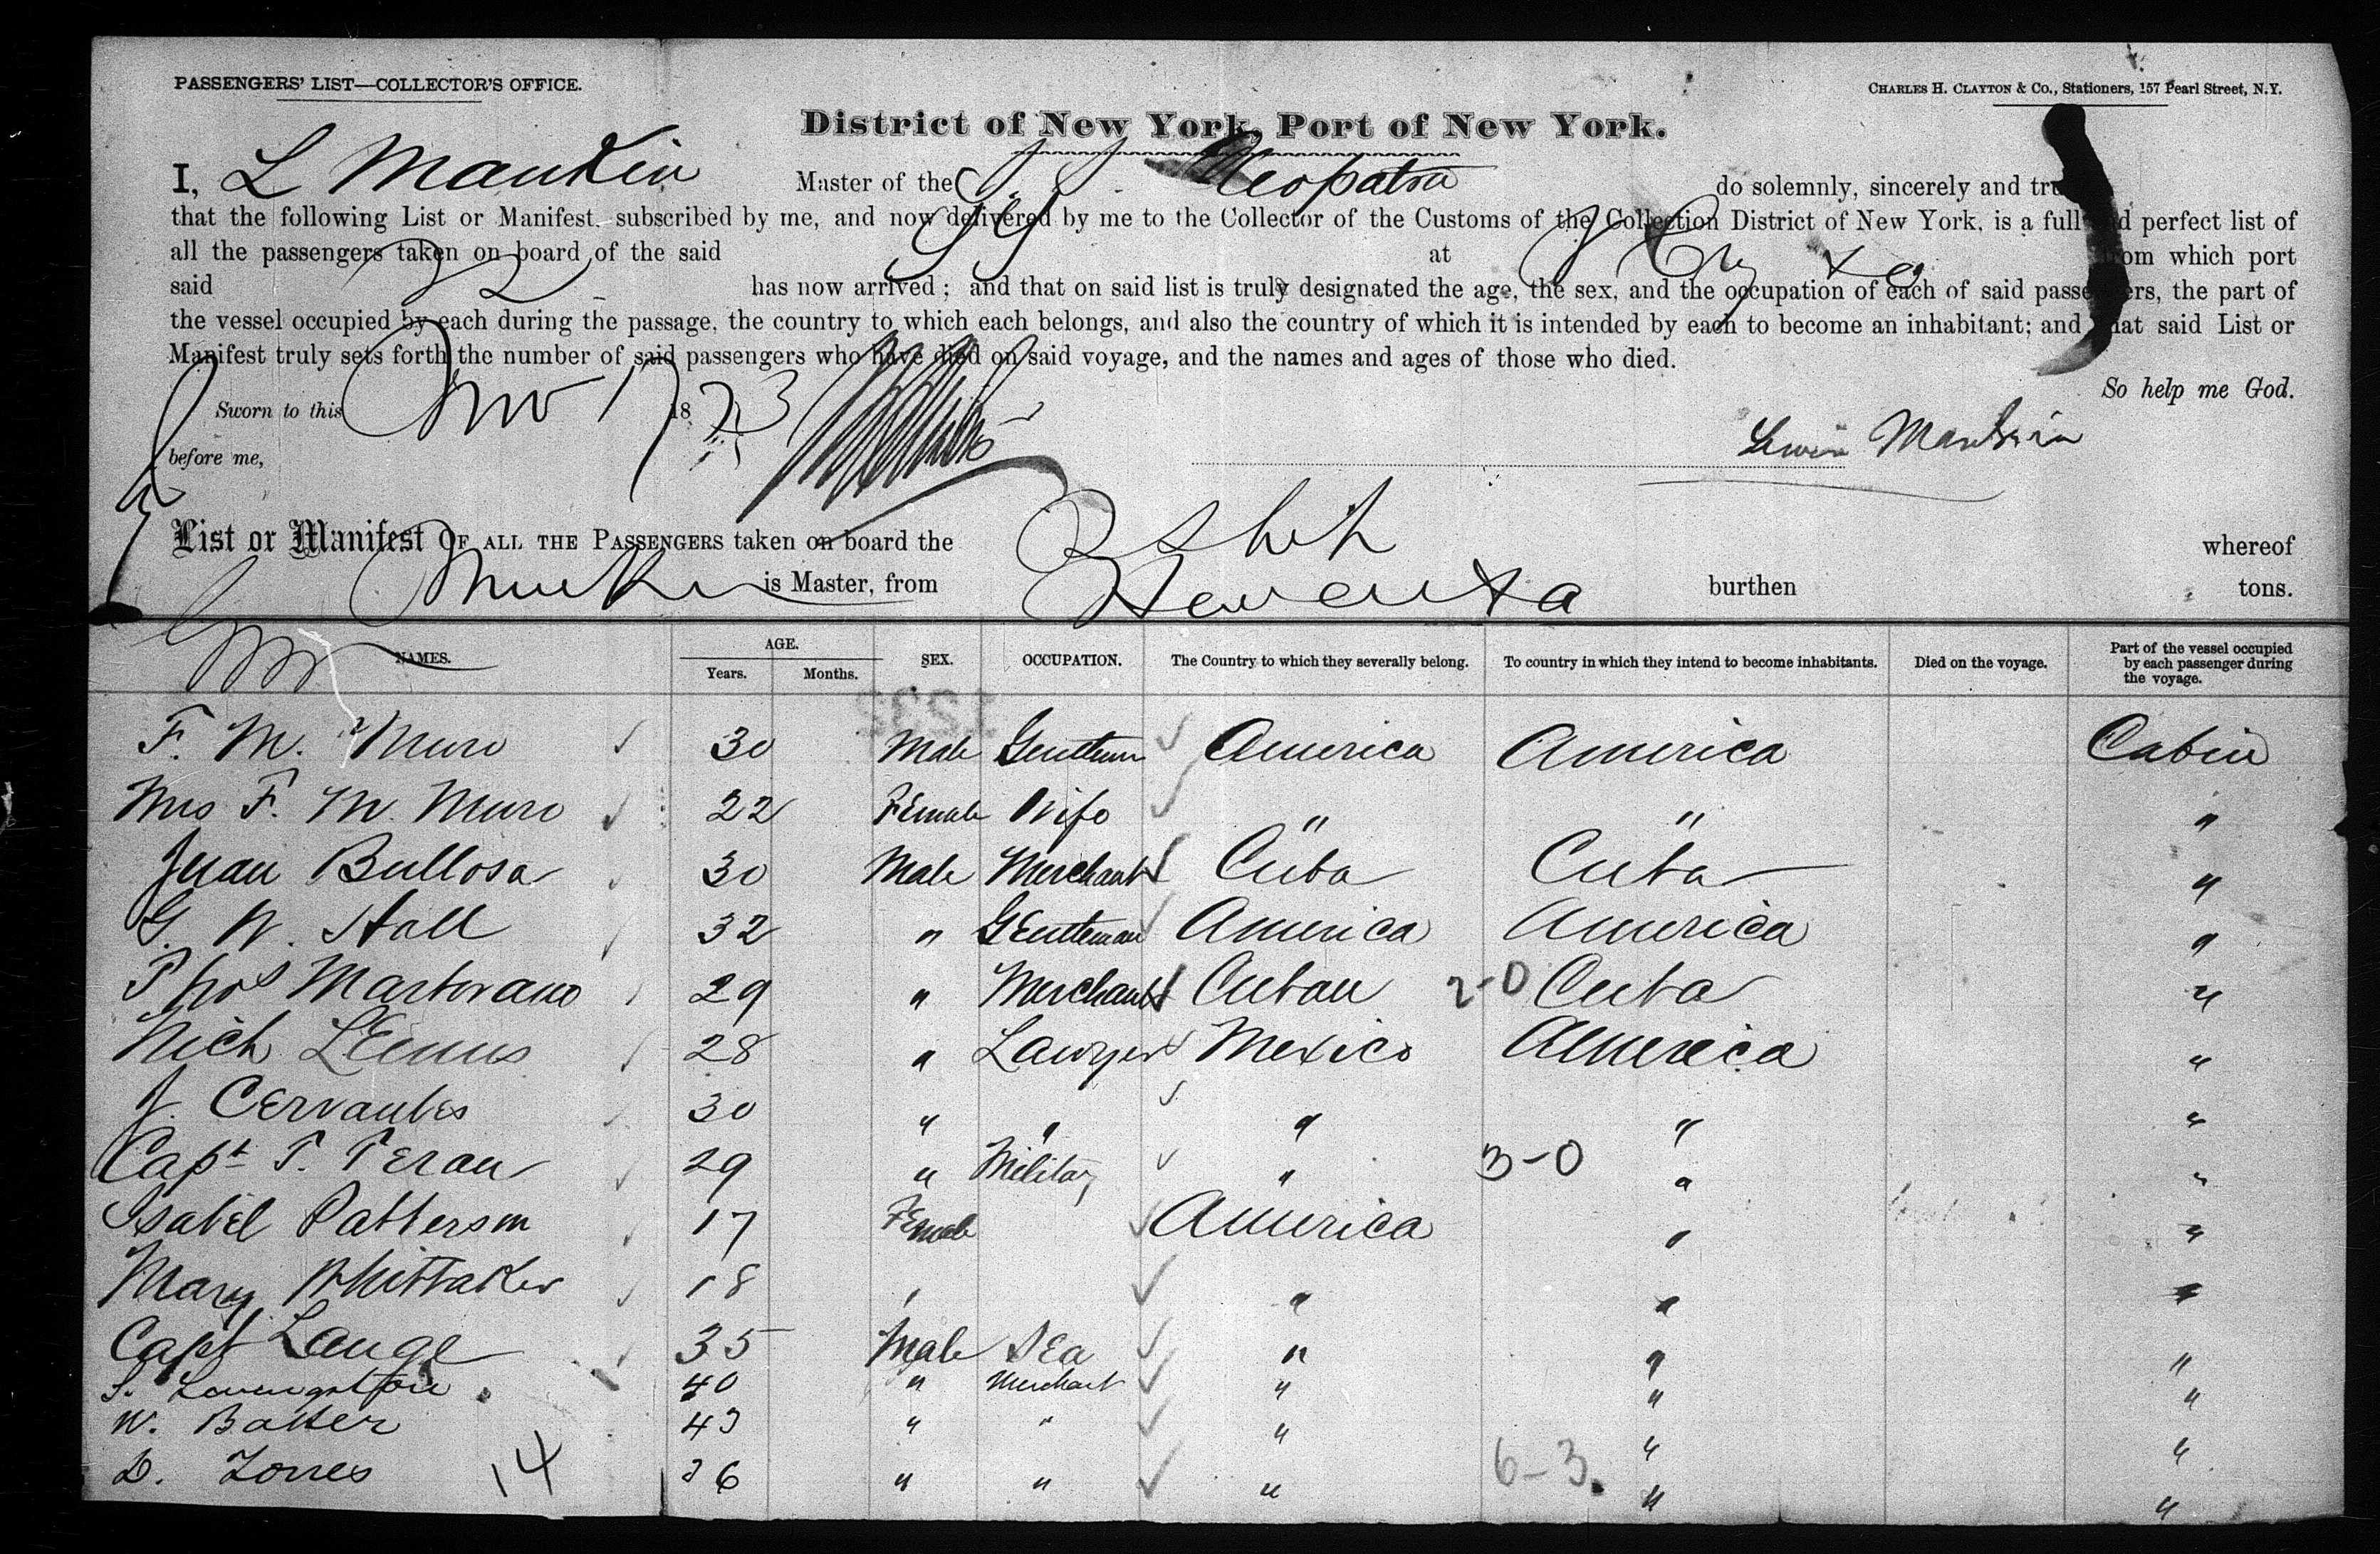 PASSENGERS' LIST—COLLECTOR'S OFFICE.
CHARLES H. CLAYTON & Co., Stationers, 157 Pearl Street, N.Y.
District of New York, Port of New York.
I, L Mankin Master of the SS Cleopatra do solemnly, sincerely and tru
that the following List or Manifest, subscribed by me, and now delivered by me to the Collector of the Customs of the Collection District of New York, is a full and perfect list of
all the passengers taken on board of the said at from which port
said has now arrived; and that on said list is truly designated the age, the sex, and the occupation of each of said passengers, the part of
the vessel occupied by each during the passage, the country to which each belongs, and also the country of which it is intended by each to become an inhabitant; and that said List or
Manifest truly sets forth the number of said passengers who have died on said voyage, and the names and ages of those who died.
So help me God.
Sworn to this Nov 17 1873
before me,
Lewis Mankin
List or Manifest OF ALL THE PASSENGERS taken on board the whereof
is Master, from burthen tons.
NAMES. AGE. Years. Months. SEX. OCCUPATION. The Country to which they severally belong. To country in which they intend to become inhabitants. Died on the voyage. Part of the vessel occupied by each passenger during the voyage.
F. M. Muro 30 Male Gentleman America America Cabin
Mrs F. M. Muro 22 Female Wife " " "
Juan Bullosa 30 Male Merchant Cuba Cuba "
G. W. Hall 32 " Gentleman America America "
Thos Martorano 29 " Merchant Cuban 2-0 Cuba "
Nich LEmus 28 " Lawyer Mexico America "
J. Cervantes 30 " " " " "
Capt T. Teran 29 " Military " 3-0 " "
Isabel Patterson 17 Female America " "
Mary Whittaker 18 " " " "
Capt Lange 35 Male Sea " " "
S. 40 " Merchant " " "
W. Baker 43 " " " " "
D. Torres 14 36 " " " 6-3 " "